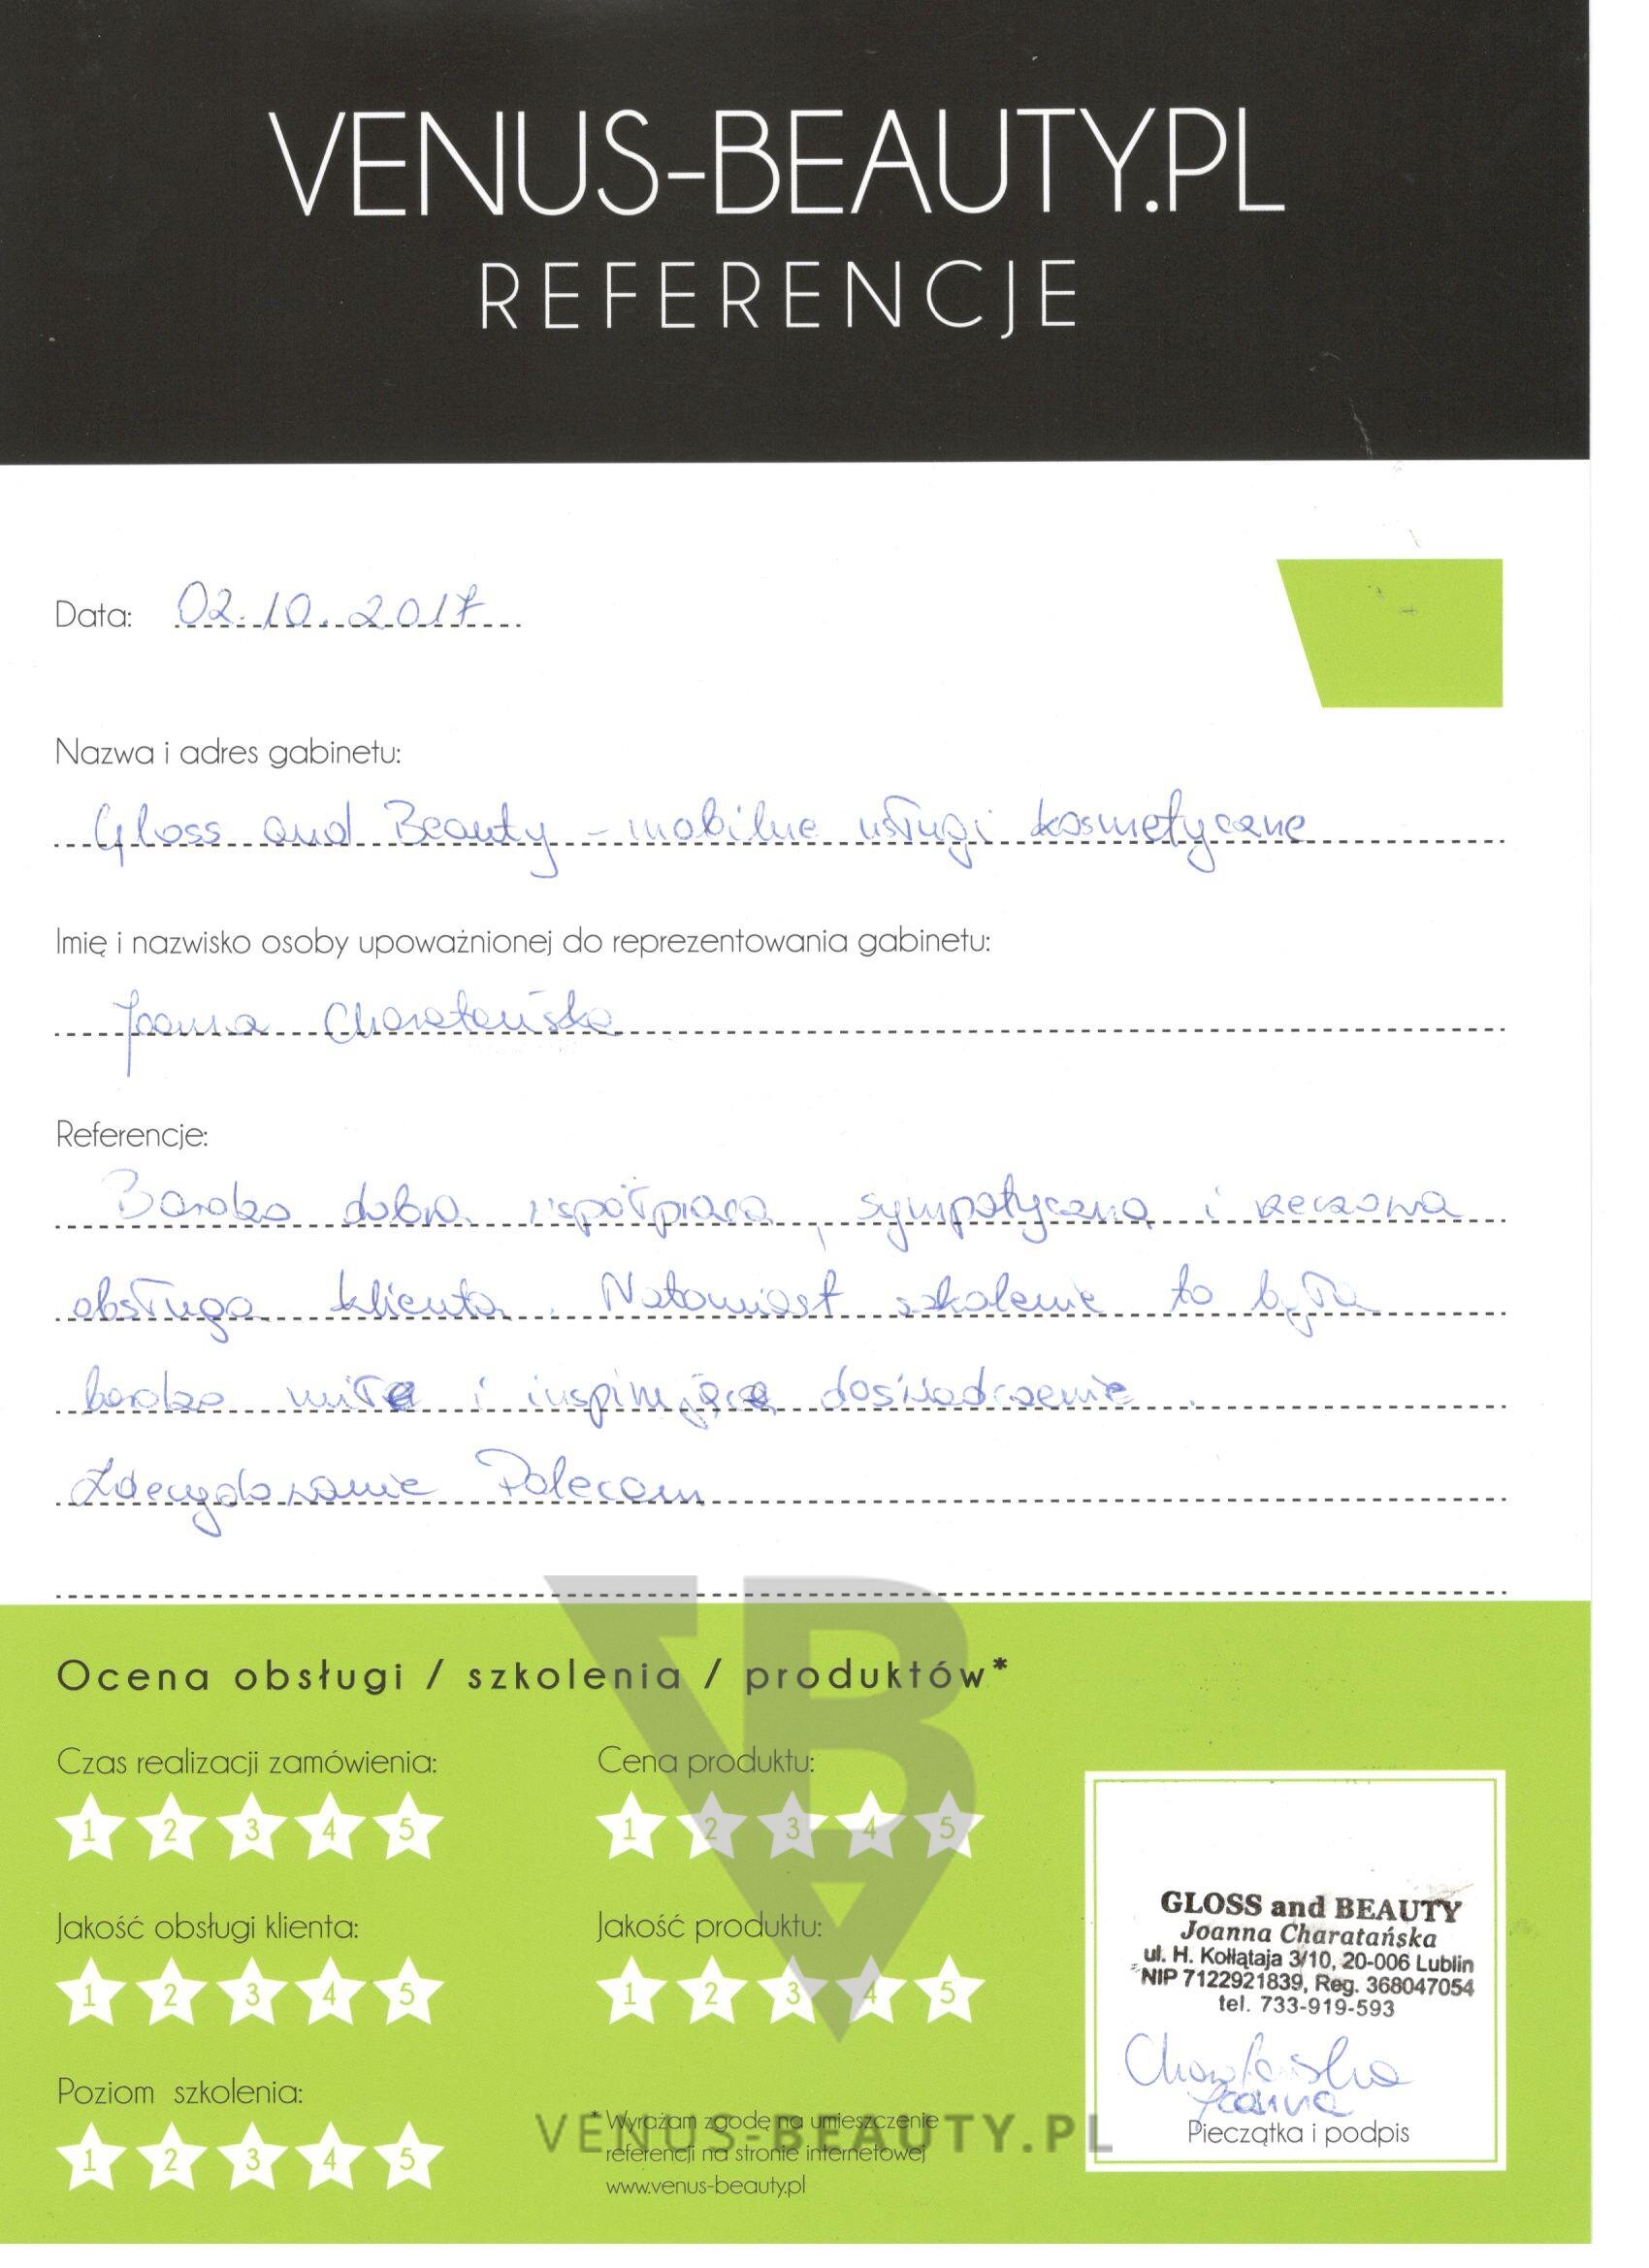 VENUS-BEAUTY.PL
REFERENCJE
Data: 02.10.2017
Nazwa i adres gabinetu:
Gloss and Beauty - mobilne usługi kosmetyczne
Imię i nazwisko osoby upoważnionej do reprezentowania gabinetu:
Joanna Charatańska
Referencje:
Bardzo dobra współpraca, sympatyczna i rzeczowa
obsługa klienta. Natomiast szkolenie to było
bardzo miłe i inspirujące doświadczenie.
Zdecydowanie Polecam
Ocena obsługi / szkolenia / produktów*
Czas realizacji zamówienia:
1 2 3 4 5
Cena produktu:
1 2 3 4 5
Jakość obsługi klienta:
1 2 3 4 5
Jakość produktu:
1 2 3 4 5
Poziom szkolenia:
1 2 3 4 5
* Wyrażam zgodę na umieszczenie
referencji na stronie internetowej
www.venus-beauty.pl
VENUS-BEAUTY.PL
GLOSS and BEAUTY
Joanna Charatańska
ul. H. Kołłątaja 3/10, 20-006 Lublin
NIP 7122921839, Reg. 368047054
tel. 733-919-593
Charatańska
Joanna
Pieczątka i podpis